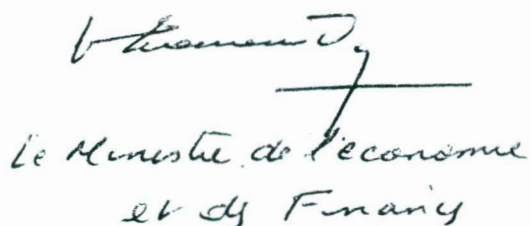 Le Ministre de l'économie
et des Finances